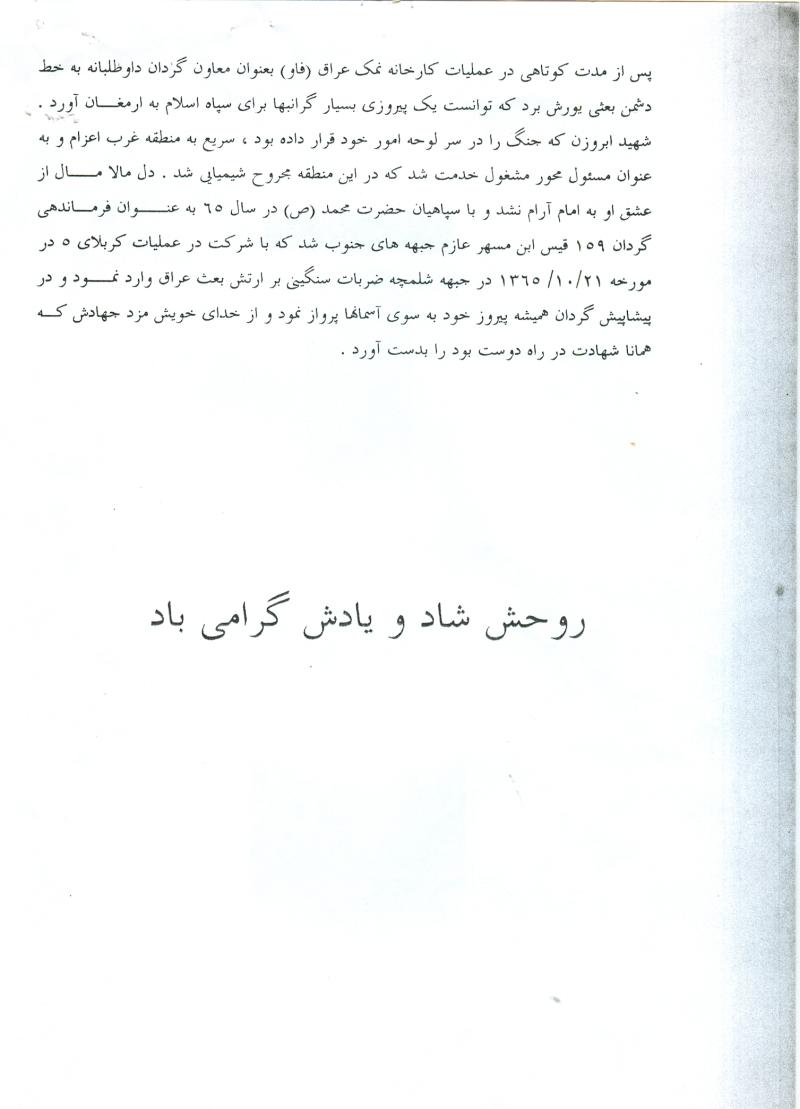 پس از مدت کوتاهی در عملیات کارخانه نمک عراق (فاو) بعنوان معاون گردان داوطلبانه به خط
دشمن بعثی یورش برد که توانست یک پیروزی بسیار گرانبها برای سپاه اسلام به ارمغـــان آورد .
شهید ابروزن که جنگ را در سر لوحه امور خود قرار داده بود ، سریع به منطقه غرب اعزام و به
عنوان مسئول محور مشغول خدمت شد که در این منطقه مجروح شیمیایی شد . دل مالا مـــــال از
عشق او به امام آرام نشد و با سپاهیان حضرت محمد (ص) در سال ٦٥ به عنـــــوان فرمــاندهی
گردان ١٥٩ قیس ابن مسهر عازم جبهه های جنوب شد که با شرکت در عملیات کربلای ٥ در
مورخه ١٣٦٥/١٠/٢١ در جبهه شلمچه ضربات سنگینی بر ارتش بعث عراق وارد نمـــــود و در
پیشاپیش گردان همیشه پیروز خود به سوی آسمانها پرواز نمود و از خدای خویش مزد جهادش کـــه
همانا شهادت در راه دوست بود را بدست آورد .
روحش شاد و یادش گرامی باد